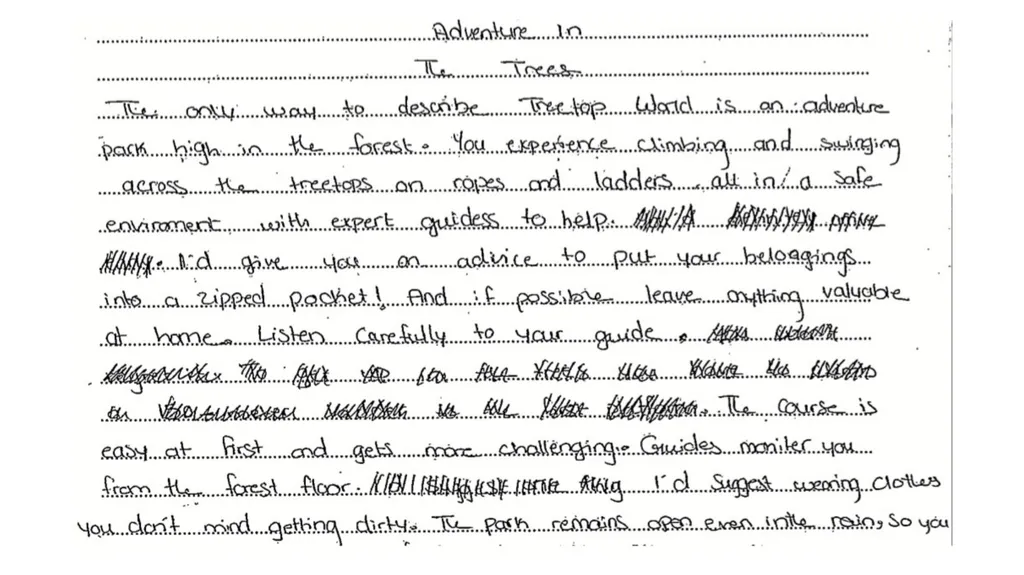 Adventure In
The Trees
The only way to describe Treetop World is an adventure
park high in the forest. You experience climbing and swinging
across the treetops on ropes and ladders, all in a safe
enviroment with expert guidess to help.
I'd give you an adivice to put your beloggings
into a zipped pocket! And if possible leave anything valuable
at home. Listen carefully to your guide.
The course is
easy at first and gets more challenging. Guides moniter you
from the forest floor. I'd suggest wearing clothes
you don't mind getting dirty. The park remains open even in the rain, so you